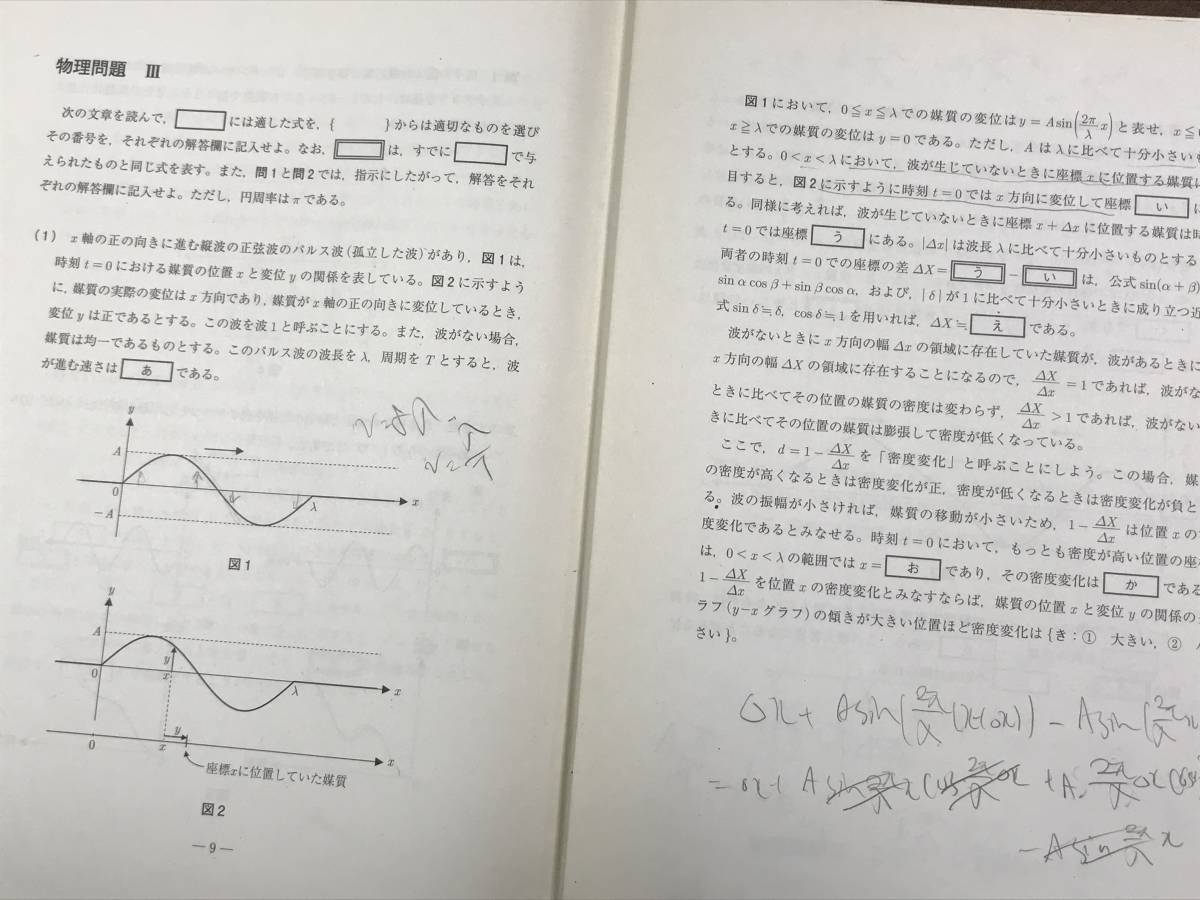 物理問題 Ⅲ
次の文章を読んで，　　には適した式を，{　　}からは適切なものを選び
その番号を，それぞれの解答欄に記入せよ。なお，　　は，すでに　　で与
えられたものと同じ式を表す。また，問1と問2では，指示にしたがって，解答をそれ
ぞれの解答欄に記入せよ。ただし，円周率はπである。
(1) x軸の正の向きに進む縦波の正弦波のパルス波(孤立した波)があり，図1は，
時刻t=0における媒質の位置xと変位yの関係を表している。図2に示すよう
に，媒質の実際の変位はx方向であり，媒質がx軸の正の向きに変位しているとき，
変位yは正であるとする。この波を波1と呼ぶことにする。また，波がない場合，
媒質は均一であるものとする。このパルス波の波長をλ，周期をTとすると，波
が進む速さは あ である。
y
A
0
-A
λ
x
図1
y
A
y
0
x
λ
x
y
0
x
x
座標xに位置していた媒質
図2
—9—
図1において，0≦x≦λでの媒質の変位はy=Asin(2π/λ x)と表せ，x≦0
x≧λでの媒質の変位はy=0である。ただし，Aはλに比べて十分小さいも
とする。0<x<λにおいて，波が生じていないときに座標xに位置する媒質に
目すると，図2に示すように時刻t=0ではx方向に変位して座標 い に
る。同様に考えれば，波が生じていないときに座標x+Δxに位置する媒質は時
t=0では座標 う にある。|Δx|は波長λに比べて十分小さいものとする
両者の時刻t=0での座標の差ΔX= う － い は，公式sin(α+β)
sinαcosβ+sinβcosα，および，|δ|が1に比べて十分小さいときに成り立つ近
式sinδ≒δ，cosδ≒1を用いれば，ΔX≒ え である。
波がないときにx方向の幅Δxの領域に存在していた媒質が，波があるときに
x方向の幅ΔXの領域に存在することになるので，ΔX/Δx=1であれば，波がな
ときに比べてその位置の媒質の密度は変わらず，ΔX/Δx>1であれば，波がない
きに比べてその位置の媒質は膨張して密度が低くなっている。
ここで，d=1-ΔX/Δxを「密度変化」と呼ぶことにしよう。この場合，媒
の密度が高くなるときは密度変化が正，密度が低くなるときは密度変化が負と
る。波の振幅が小さければ，媒質の移動が小さいため，1-ΔX/Δxは位置xの
度変化であるとみなせる。時刻t=0において，もっとも密度が高い位置の座
は，0<x<λの範囲ではx= お であり，その密度変化は か である
1-ΔX/Δxを位置xの密度変化とみなすならば，媒質の位置xと変位yの関係の
ラフ(y-xグラフ)の傾きが大きい位置ほど密度変化は{き：① 大きい，②
さい}。